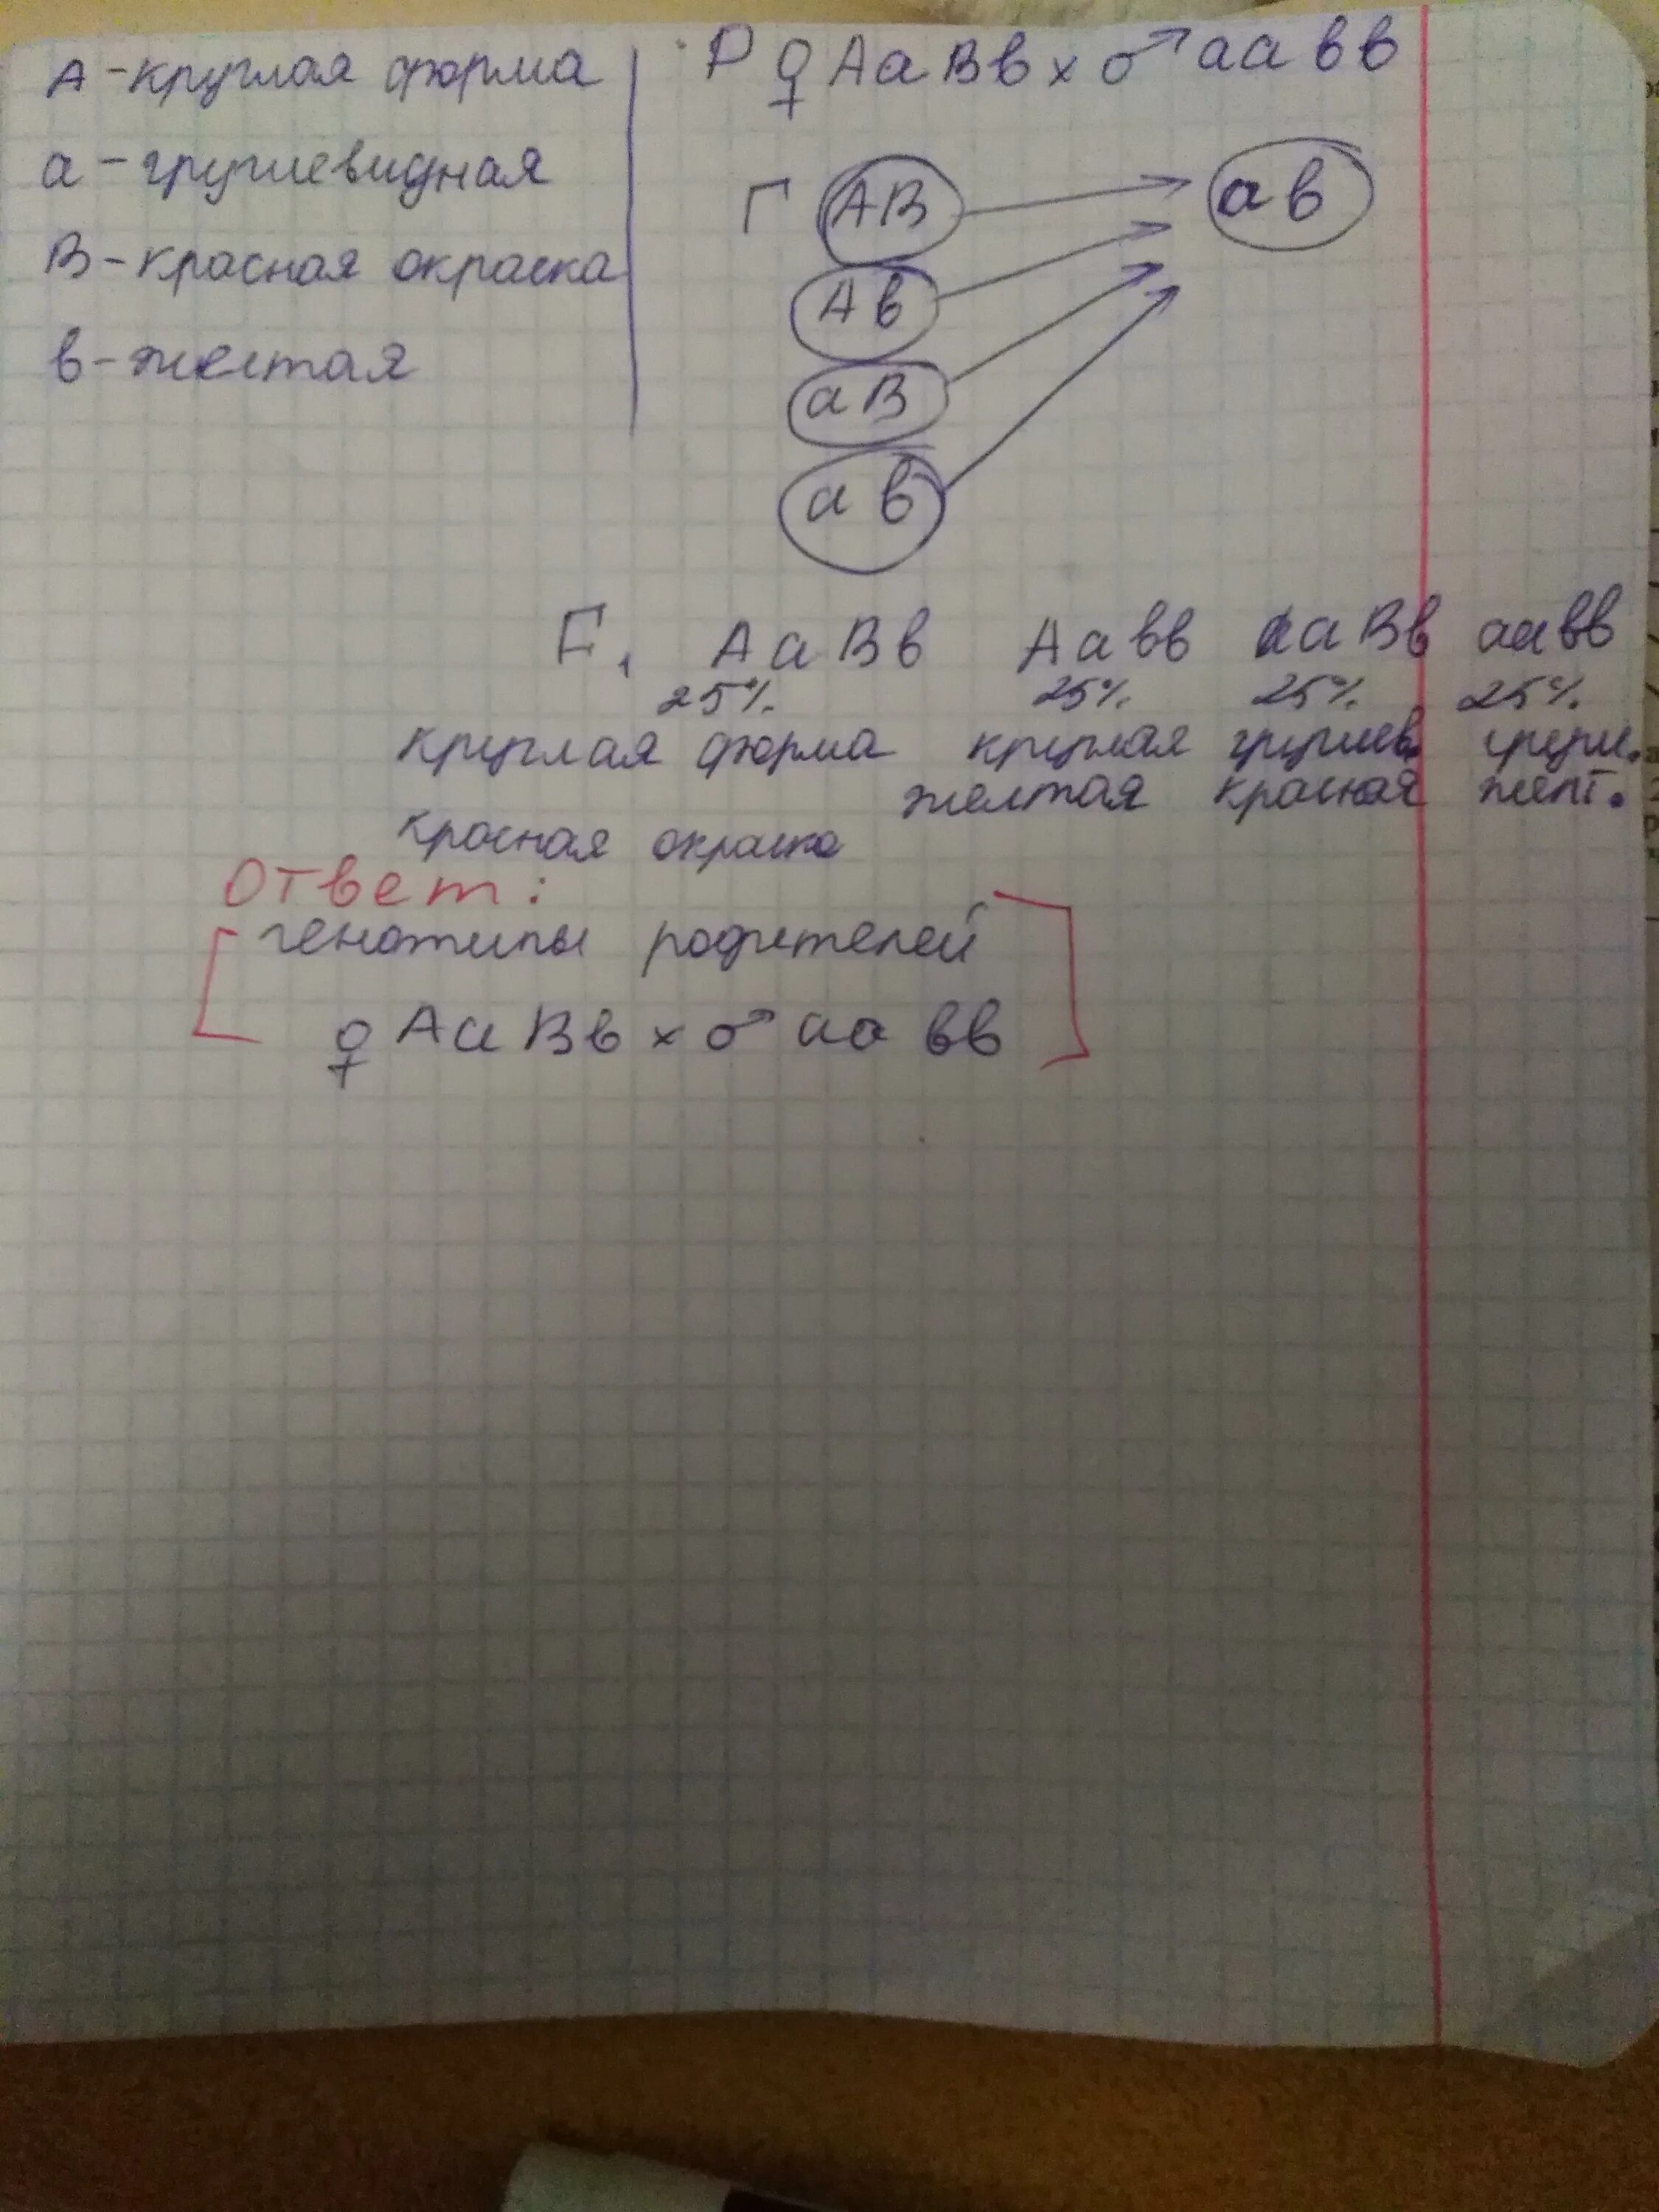 А - круглая форма
а - грушевидная
В - красная окраска
в - желтая
Р ♀ АаВв × ♂ аавв
Г АВ ав
Ав
аВ
ав
F₁ АаВв Аавв ааВв аавв
25% 25% 25% 25%
круглая форма круглая грушев. груш.
желтая красная желт.
красная окраска
Ответ:
генотипы родителей
♀ АаВв × ♂ аавв